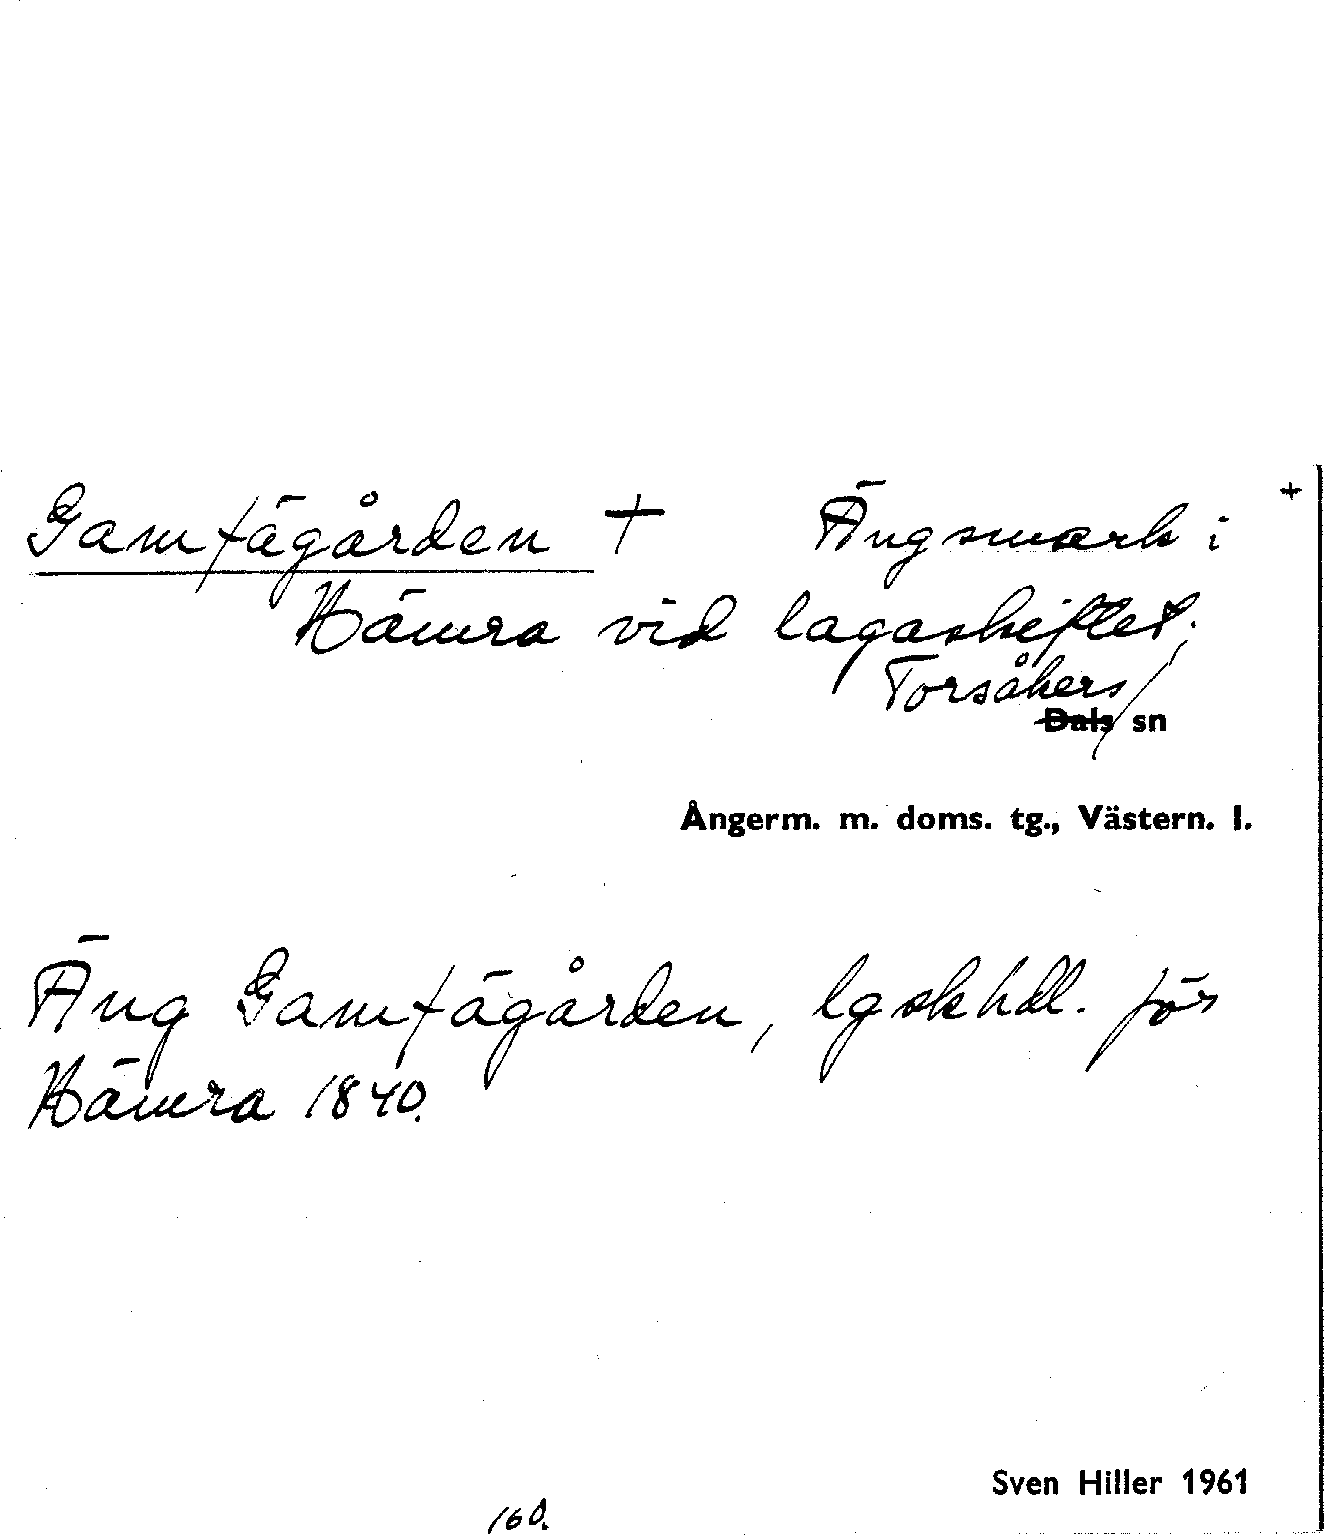 Gamfägården + Ängsmark i +
Hämra vid lagaskiftet;
Torsåkers/
Dals/ sn
Ångerm. m. doms. tg., Västern. l.
Äng Gamfägården, lgskhdl. för
Hämra 1840.
Sven Hiller 1961
160.